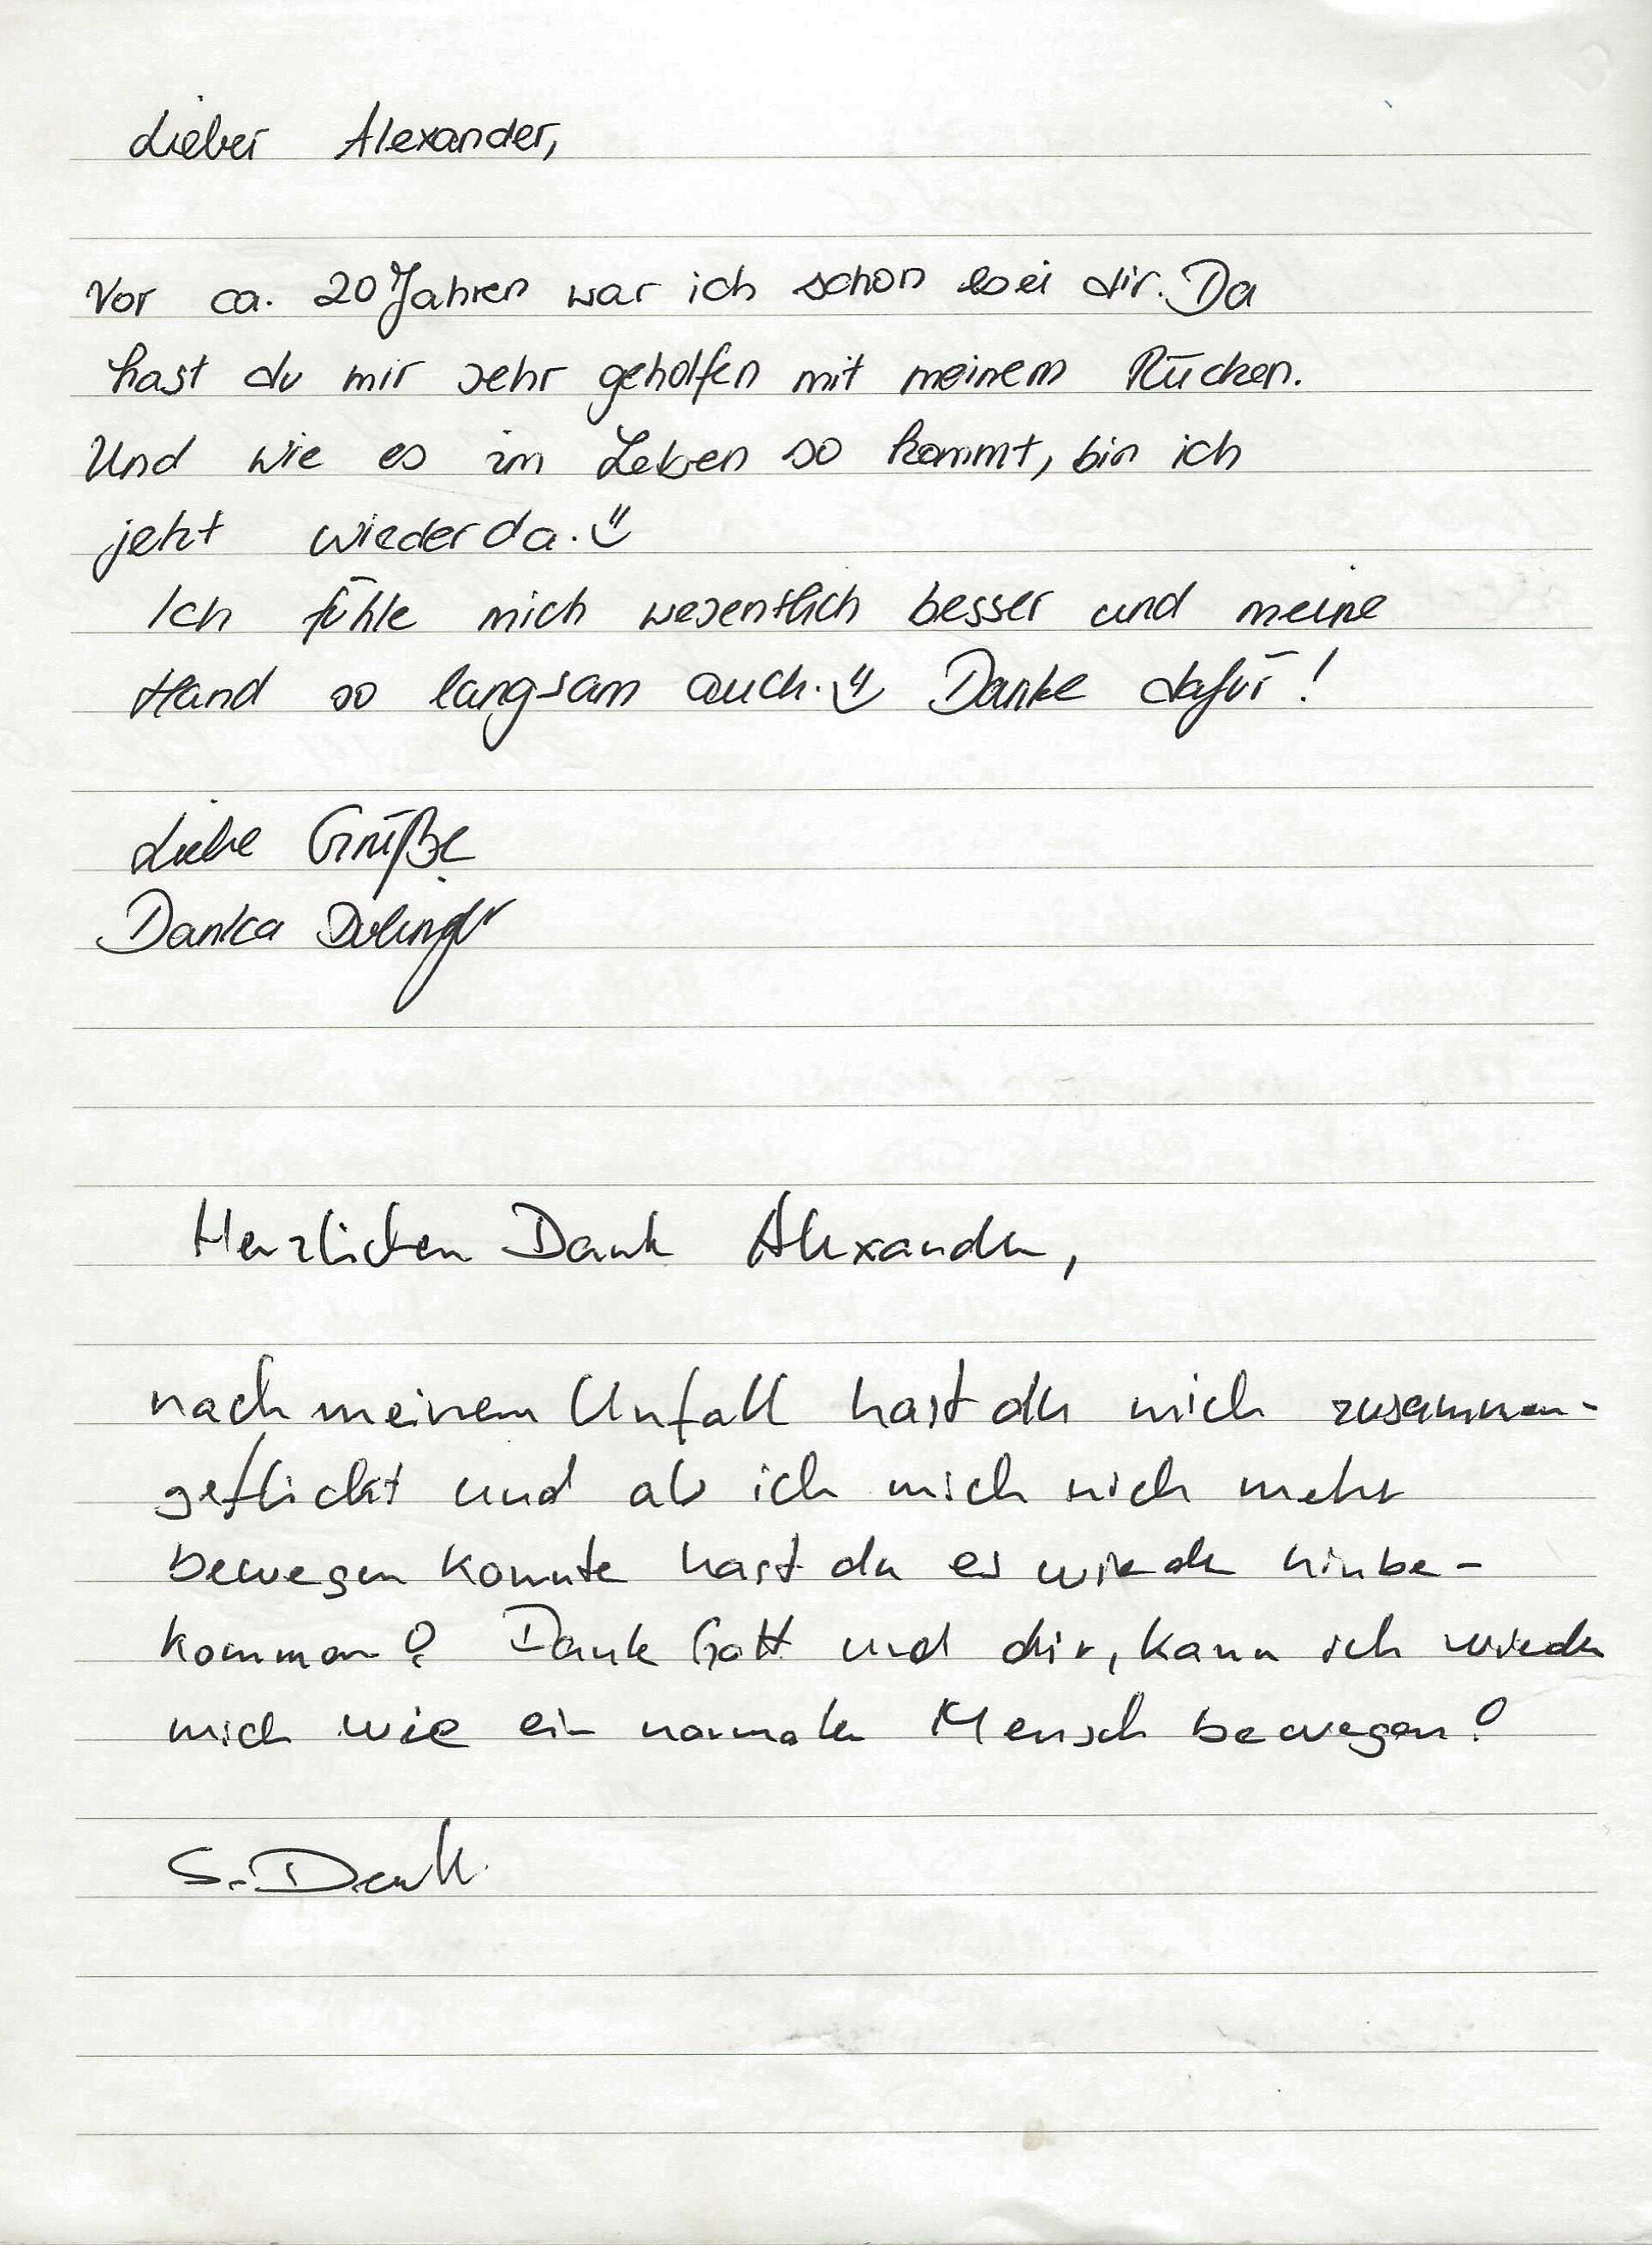 Lieber Alexander,
Vor ca. 20 Jahren war ich schon bei dir. Da
hast du mir sehr geholfen mit meinem Rücken.
Und wie es im Leben so kommt, bin ich
jetzt wieder da.
Ich fühle mich wesentlich besser und meine
Hand so langsam auch. Danke dafür!
Liebe Grüße
Danka
Herzlichen Dank Alexander,
nach meinem Unfall hast du mich zusammen-
geflickt und als ich mich nich mehr
bewegen konnte hast du es wieder hinbe-
kommen! Dank Gott und dir, kann ich wieder
mich wie ein normaler Mensch bewegen!
S.